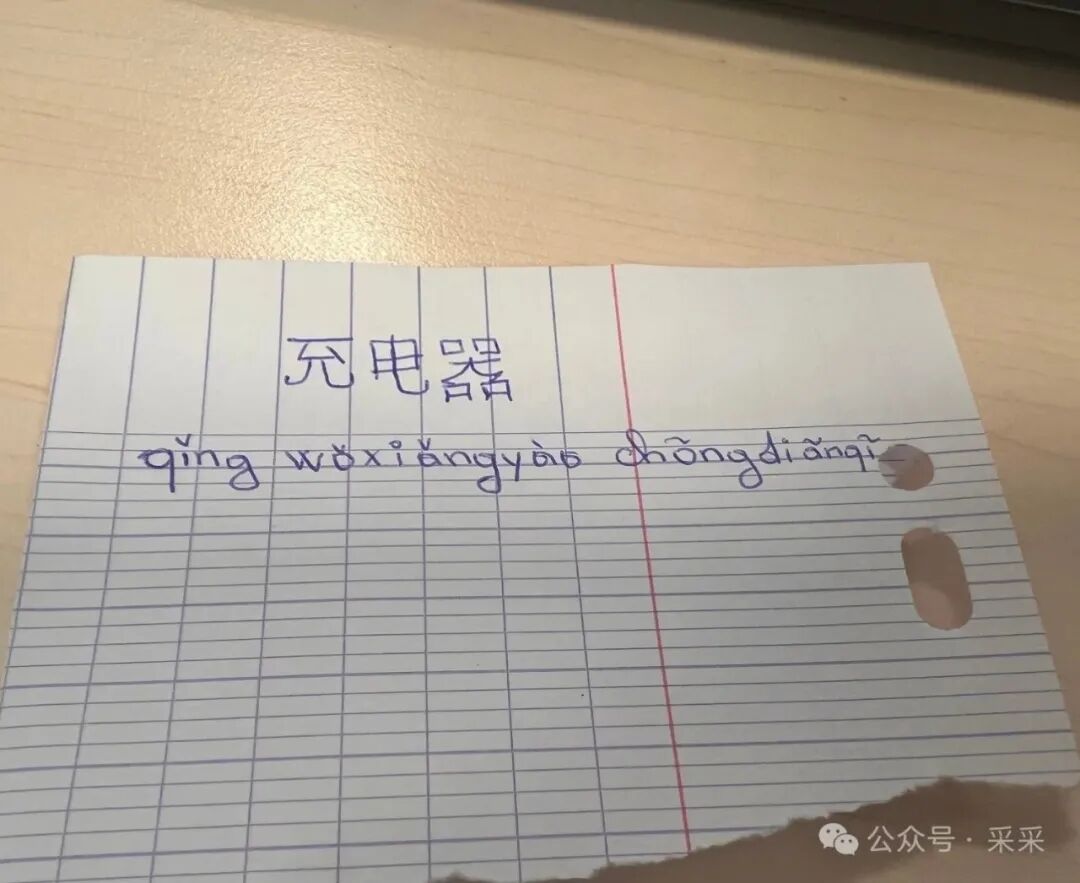 充电器
qǐng wǒxiǎngyào chōngdiānqī
公众号 · 采采